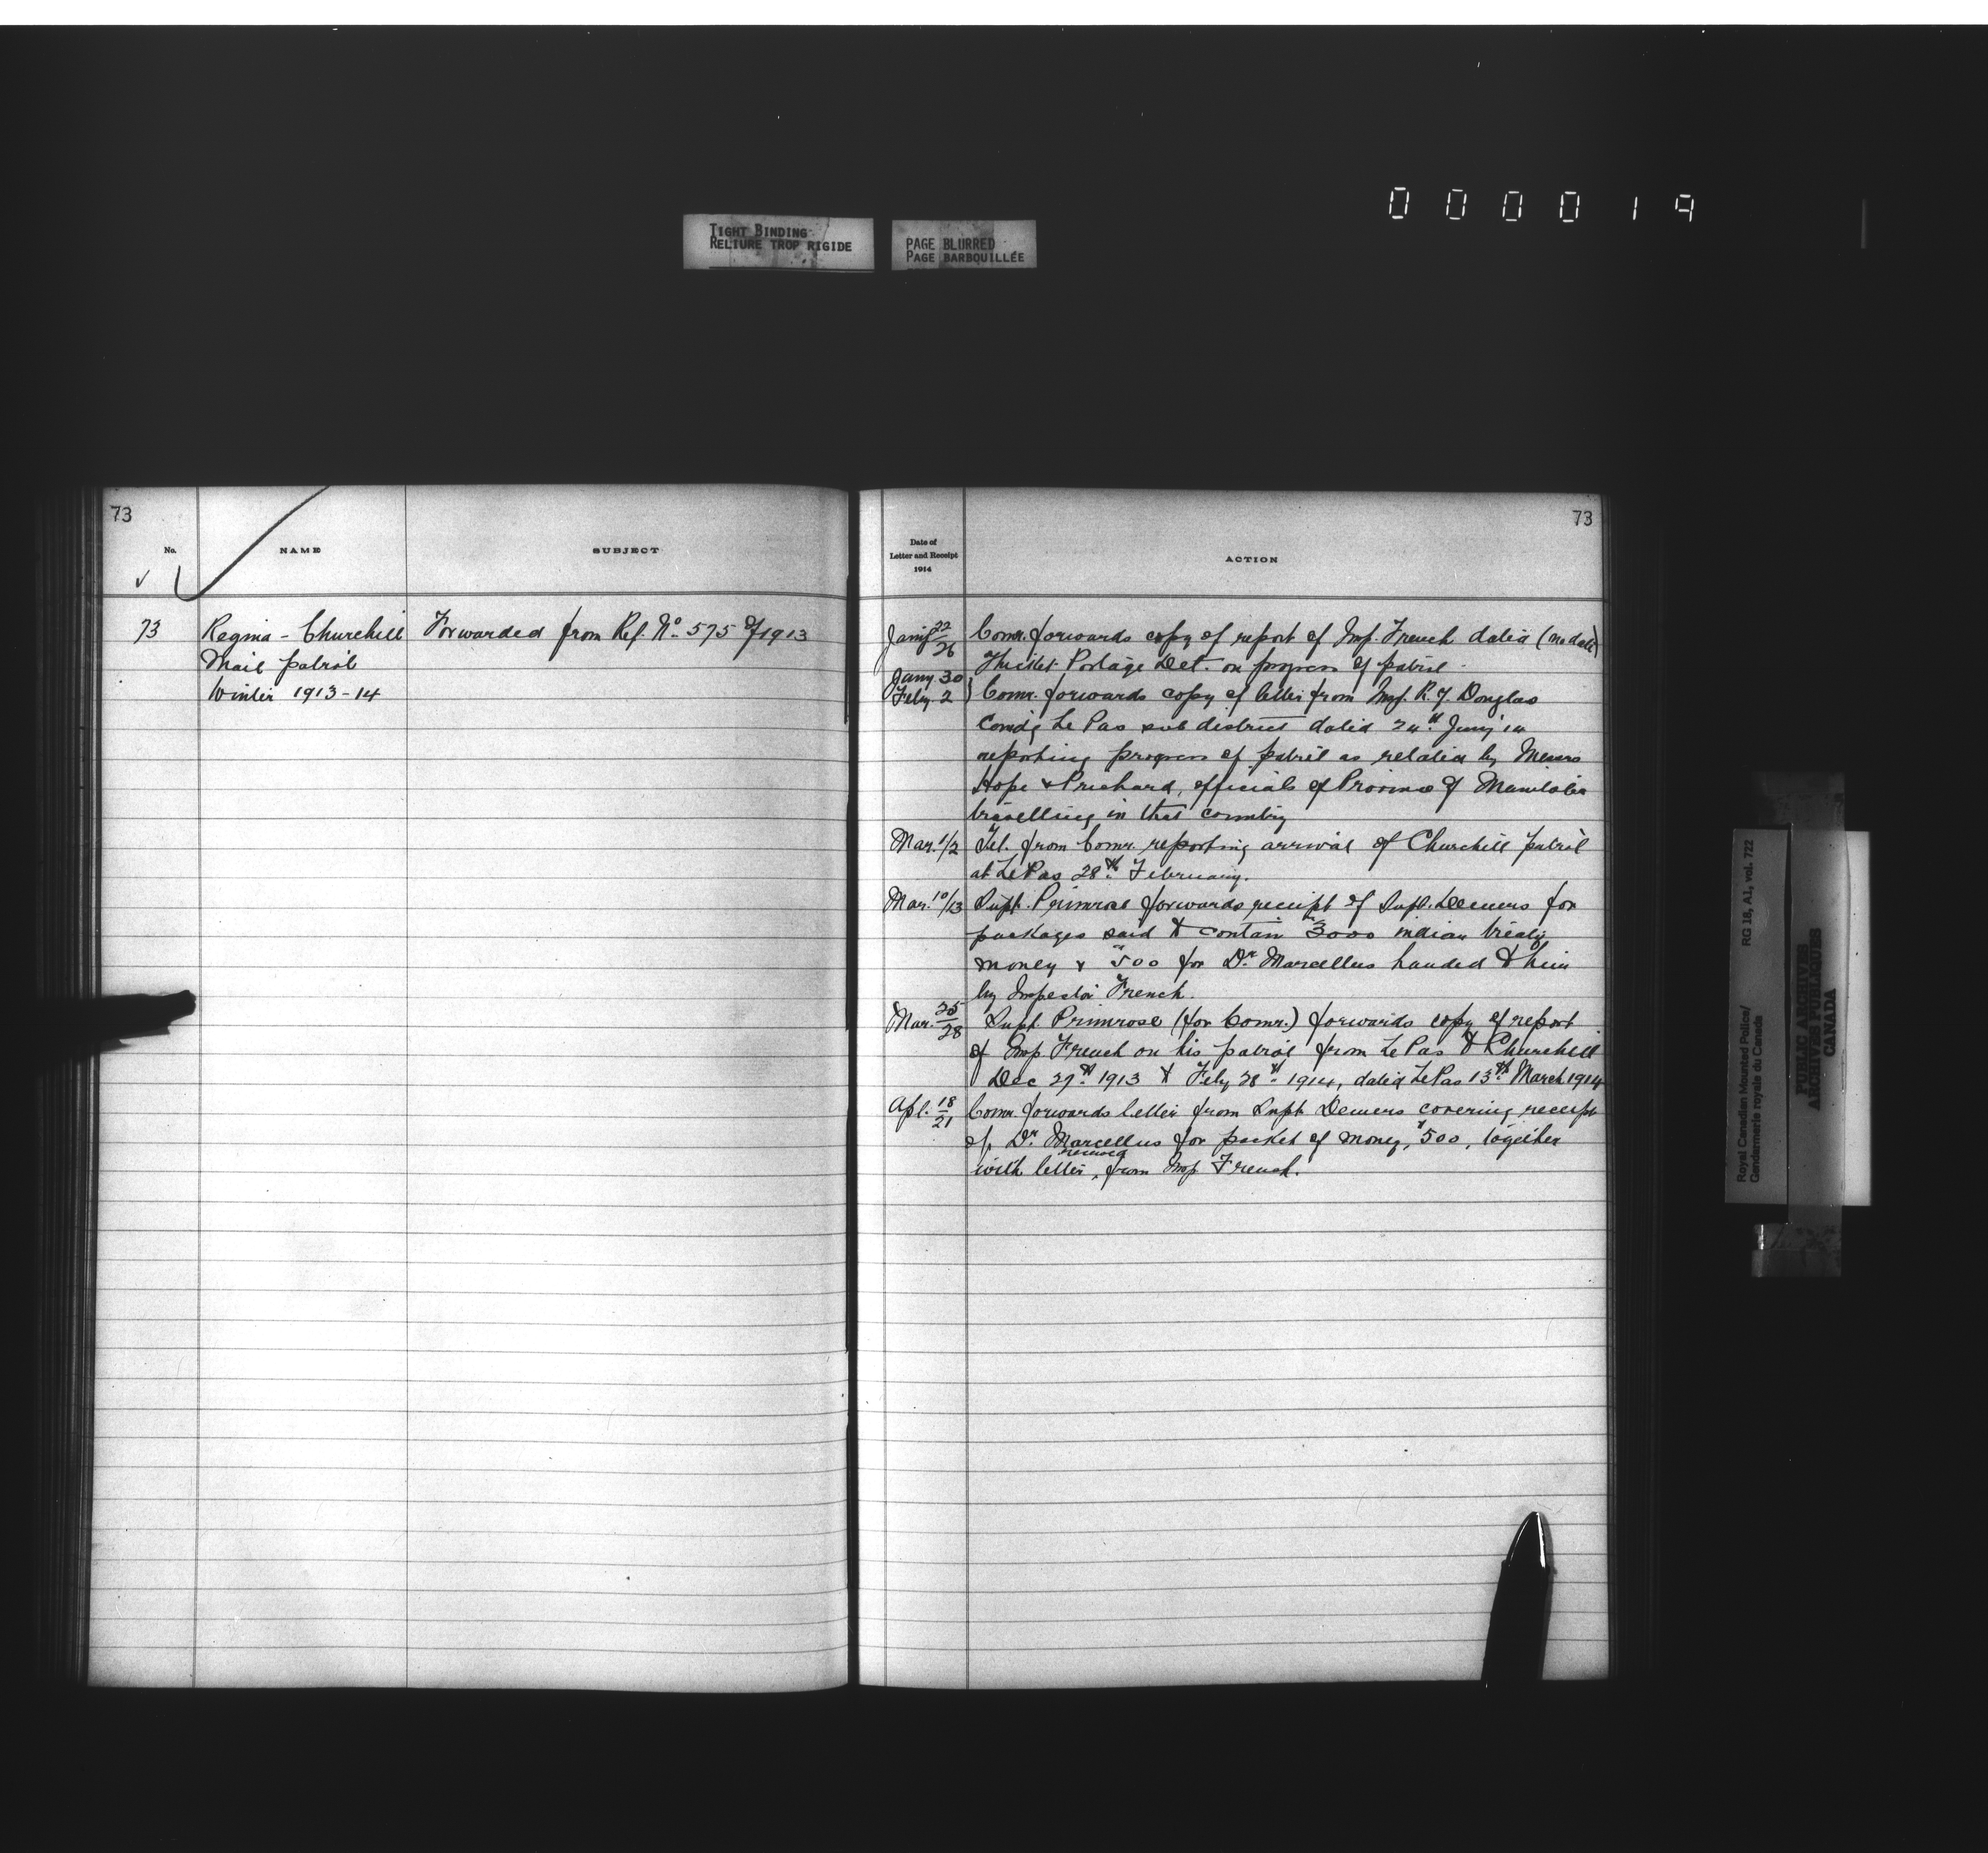 000019
TIGHT BINDING
RELIURE TROP RIGIDE
PAGE BLURRED
PAGE BARBOUILLÉE
73
No.
NAME
SUBJECT
73
Regina - Churchill
Mail patrol
Winter 1913-14
Forwarded from Ref. No. 575 of 1913
73
Date of
Letter and Receipt
1914
ACTION
Jany 22/26 Comr. forwards copy of report of Insp. French dated (no date)
Thicket Portage Det. on progress of patrol.
Jany 30
Feby. 2 } Comr. forwards copy of letter from Insp. R. Y. Douglas
Comd'g Le Pas sub district dated 24th Jany 14
reporting progress of patrol as related by Messrs
Hope & Prichard, officials of Province of Manitoba
travelling in that country
Mar. 1/2 Tel. from Comr. reporting arrival of Churchill patrol
at Le Pas 28th February.
Mar. 10/13 Supt. Primrose forwards receipt of Supt. Demers for
packages said to contain $3000 indian treaty
money & $500 for Dr. Marcellus handed to him
by Inspector French.
Mar. 25/28 Supt. Primrose (for Comr.) forwards copy of report
of Insp French on his patrol from Le Pas to Churchill
Dec 27th 1913 to Feby 28th 1914, dated Le Pas 13th March 1914
Apl. 18/21 Comr. forwards letter from Supt Demers covering receipt
of Dr. Marcellus for packet of money, $500, together
with letter, received from Insp French.
Royal Canadian Mounted Police/
Gendarmerie royale du Canada
RG 18, A1, vol. 722
PUBLIC ARCHIVES
ARCHIVES PUBLIQUES
CANADA